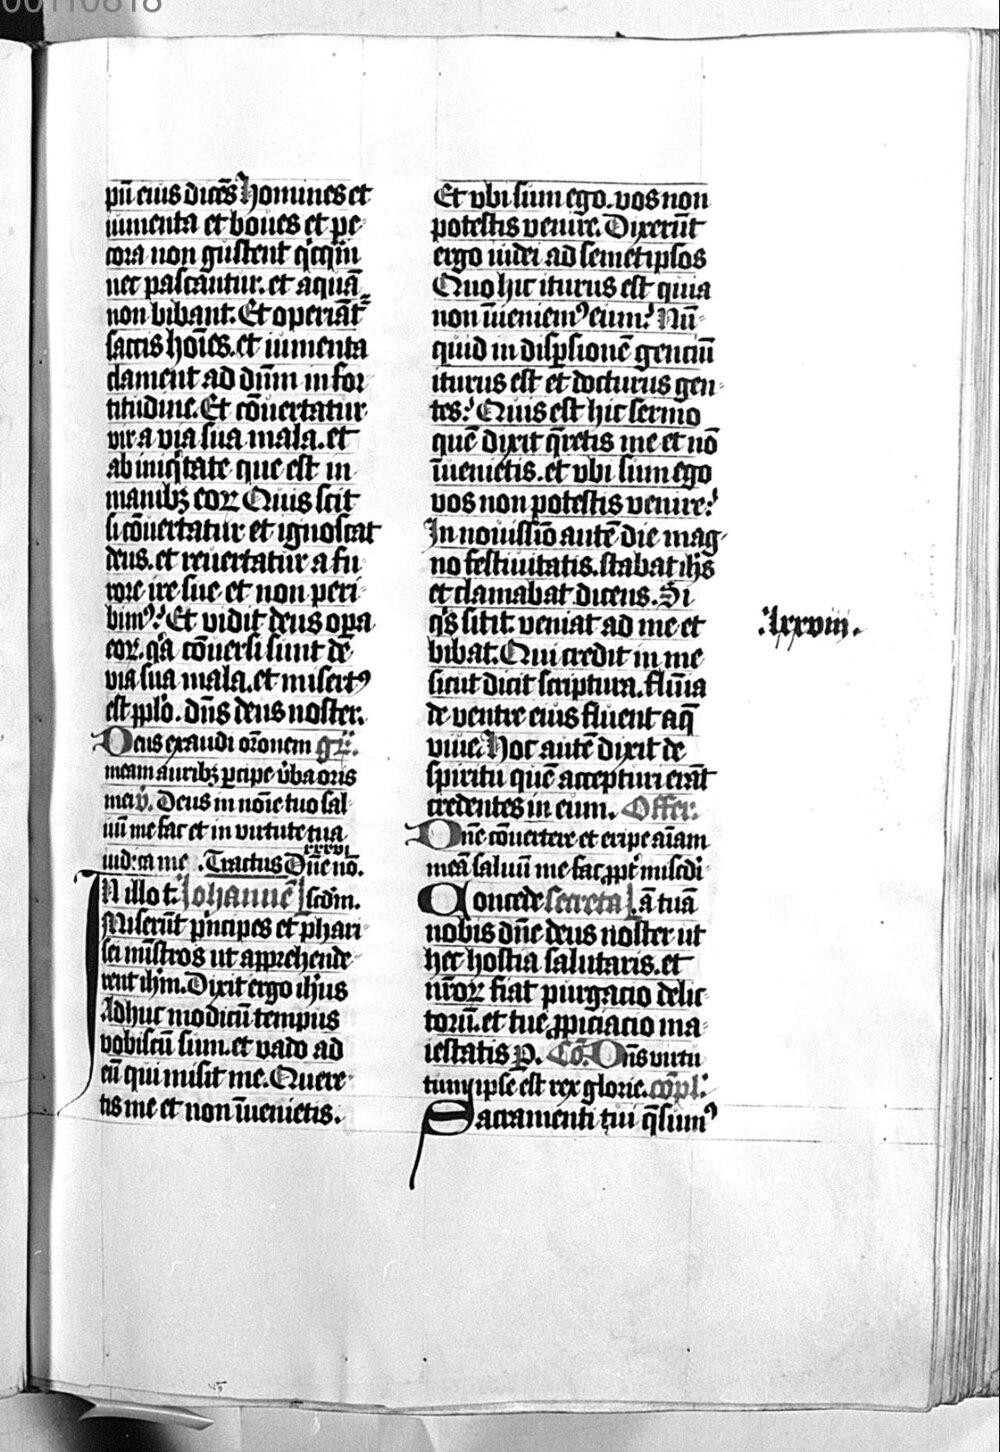 00110818
pū eius dicēs Homines et
iumenta et boues et pe
cora non gustent q̄cq̄m
nec pascantur. et aquā
non bibant. Et operiāt͛
saccis hoīes. et iumenta
clament ad dn̄m in for
titudine. Et cōuertatur
vir a via sua mala. et
ab iniq̇tate que est in
manibꝫ eoꝝ Quis scit
si cōuertatur et ignoscat
deus. et reuertatur a fu
rore ire sue et non peri
bimꝰ? Et vidit deus oꝑa
eoꝝ. qͣ cōuersi sunt de
via sua mala. et misertꝰ
est pplo. dn̄s deus noster.
Deus exaudi or̄onem gr̄.
meam auribꝫ ꝑcipe v̄ba oris
mei v̄. Deus in noīe tuo sal
uū me fac et in virtute tua
xxxvi
iudica me. Tractus Dn̄e nō.
IN illo t. Johannē scdm.
Miserūt pͥncipes et phari
sei mīstros ut apprehende
rent ih̄m. Dixit ergo ih̄us
Adhuc modicū tempus
vobiscū sum. et vado ad
eū qui misit me. Quere
tis me et non īuenietis.
Et vbi sum ego. vos non
potestis venire. Dixerūt
ergo iudei ad semetipsos
Quo hic iturus est quia
non īueniemꝰ eum? Nū
quid in disꝑsionē genciū
iturus est et docturus gen
tes? Quis est hic sermo
quē dixit q̄retis me et nō
īuenietis. et vbi sum ego
vos non potestis venire?
In nouissīo autē die mag
no festiuitatis. stabat ih̄s
et clamabat dicens. Si
.lxxviii.
qͥs sitit. veniat ad me et
bibat. Qui credit in me
sicut dicit scriptura. flūīa
de ventre eius fluent aq̄
viue. Hoc autē dixit de
spiritu quē accepturi erāt
credentes in eum. Offer.
Dn̄e cōuertere et eripe aīam
meā saluū me fac ꝓpt̄ misc̄di
Concede secreta ā tuā
nobis dn̄e deus noster ut
hec hostia salutaris. et
nr̄oꝝ fiat purgacio delic
torū. et tue ꝓpiciacio ma
iestatis P. Cō. Dn̄s virtu
tum ipse est rex glorie. cōpl.
Sacramenti tui q̄sumꝰ